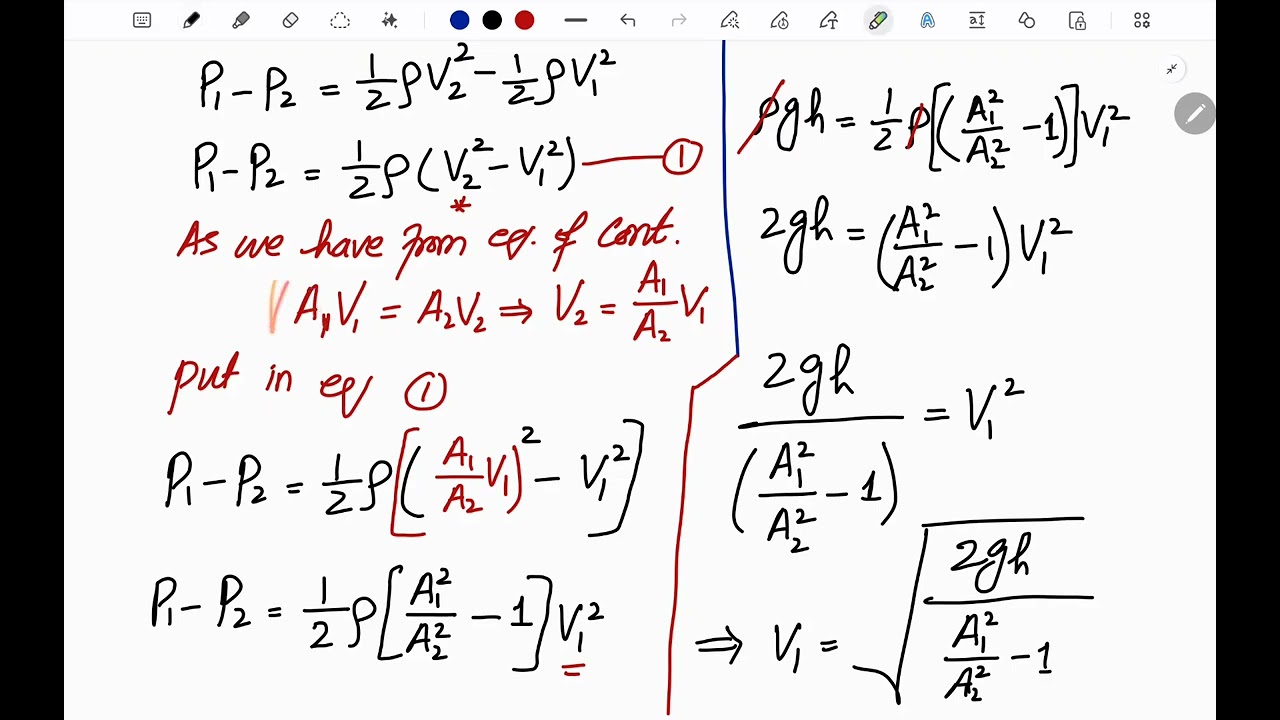 P₁ – P₂ = 1/2 ρV₂² – 1/2 ρV₁²
P₁ – P₂ = 1/2 ρ(V₂² – V₁²) — ①
*
As we have from eq. of cont.
A₁V₁ = A₂V₂ ⇒ V₂ = A₁/A₂ V₁
put in eq ①
P₁ – P₂ = 1/2 ρ[(A₁/A₂ V₁)² – V₁²]
P₁ – P₂ = 1/2 ρ[A₁²/A₂² – 1]V₁²
ρgh = 1/2 ρ[(A₁²/A₂² – 1)]V₁²
2gh = (A₁²/A₂² – 1)V₁²
2gh/(A₁²/A₂² – 1) = V₁²
⇒ V₁ = √(2gh/(A₁²/A₂² – 1))